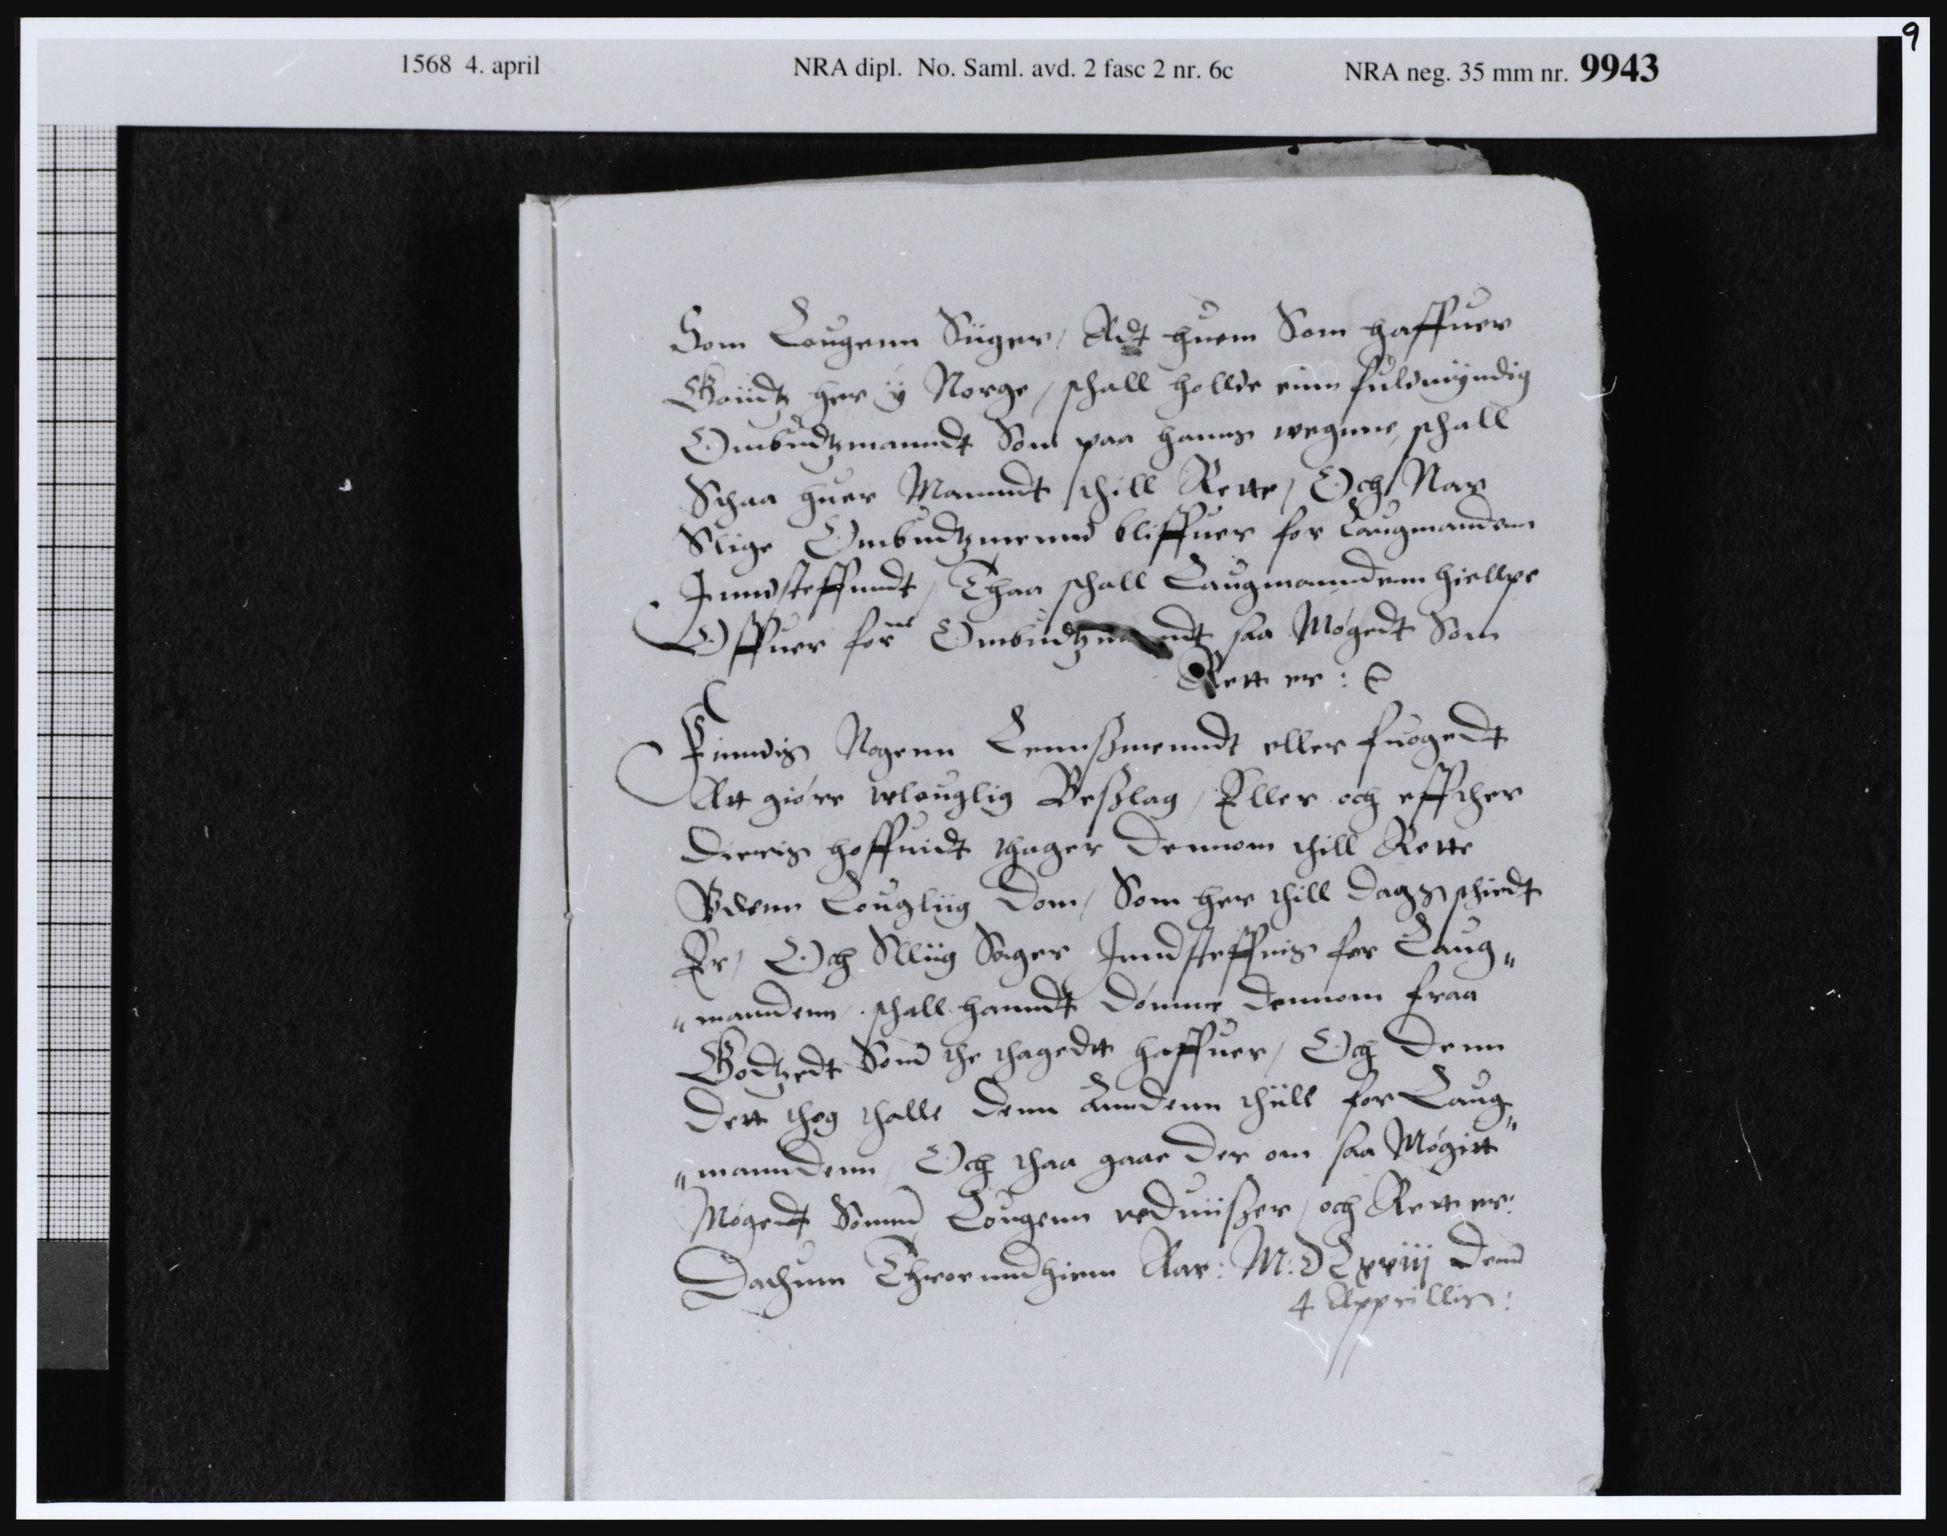 9
1568 4. april NRA dipl. No. Saml. avd. 2 fasc 2 nr. 6c NRA neg. 35 mm nr. 9943
Som Lougenn Siiger, Adt huem Som haffuer
Godtz her y Norge, schall hollde einn fuldmyndig
Ombudtzmanndt Som paa hanns wegnne, schall
Schaa huer Manndt thill Rette, Och Nar
Slige Ombudtzmennd bliffuer for Laugmandenn
Inndsteffnndt, Thaa schall Laugmanndenn hiellpe
Offuer forne Ombudtzmanndt saa Møgedt Som
Rett er:
Finndis Nogenn Lennßmenndt eller fuogedt
Att giøre wlouglig Beßlag, Eller och effther
dieris hoffuidt thager dennom thill Rette
Vdenn Lougliig dom, Som her thill dags schiedt
Er, Och Sliig Sager Inndsteffnis for Laug-
-manndenn, schall hanndt dømme dennom fraa
Godtzedt Som the thagedtt haffuer, Och denn
dett thog thalle denn Anndenn thiill for Laug-
-manndenn, Och thaa gaae der om saa Møgitt
Møgedt Somm Lougenn vduiißer, och Rett er:
Dathum Throenndhiem Aar: M:DLxviij denn
4 Apprillis: